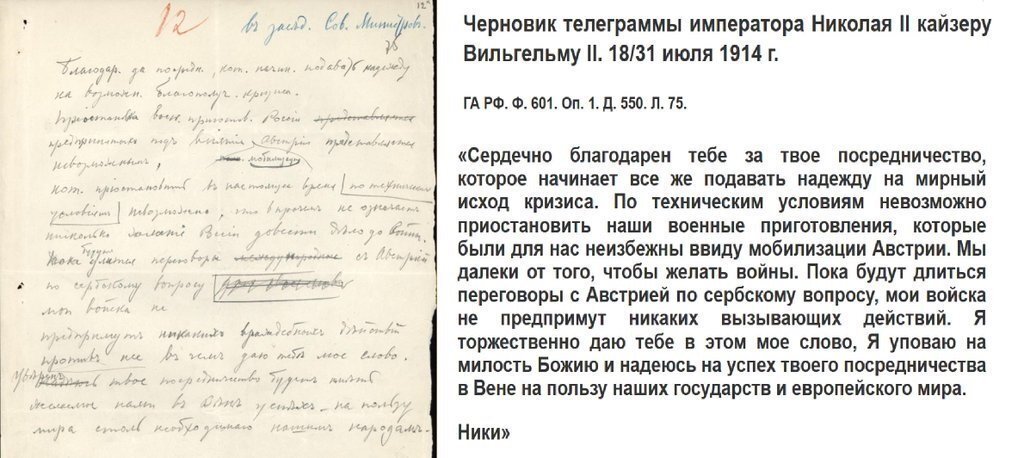 12
12
въ засѣд. Сов. Министровъ.
Благодар. за посредн., кот. начин. подавать надежду
на возможн. благополуч. кризиса.
Пріостановка воен. приготов. Россіи представляется
предпринятыхъ подъ Австріи представляется
невозможнымъ, мобилизаціи
кот. пріостановить въ настоящее время по техническ.
условіямъ невозможно, что впрочемъ не означаетъ
нисколько желаніе Россіи довести дѣло до войны.
Пока будутъ длится переговоры международные съ Австріей
по сербскому вопросу
мои войска не
предпримутъ никакихъ враждебныхъ дѣйствій
противъ нее въ чемъ даю тебѣ мое слово.
твое посредничество будетъ имѣть
желаемый нами въ Вѣнѣ успѣхъ на пользу
мира столь необходимаго нашимъ народамъ.
Черновик телеграммы императора Николая II кайзеру
Вильгельму II. 18/31 июля 1914 г.
ГА РФ. Ф. 601. Оп. 1. Д. 550. Л. 75.
«Сердечно благодарен тебе за твое посредничество,
которое начинает все же подавать надежду на мирный
исход кризиса. По техническим условиям невозможно
приостановить наши военные приготовления, которые
были для нас неизбежны ввиду мобилизации Австрии. Мы
далеки от того, чтобы желать войны. Пока будут длиться
переговоры с Австрией по сербскому вопросу, мои войска
не предпримут никаких вызывающих действий. Я
торжественно даю тебе в этом мое слово, Я уповаю на
милость Божию и надеюсь на успех твоего посредничества
в Вене на пользу наших государств и европейского мира.
Ники»